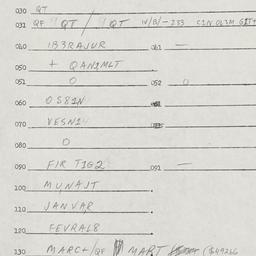 030 QT
031 QF QT / QT W/B/-233
040 1B3RAJUR 041 —
050 + QAN1MLT
051 O 052 O
060 OS81N
070 VESN14
080 O
090 FIR T1G2 091 —
100 MUNAJT
110 JANVAR
120 FEVRAL8
130 MARC+/QF MART